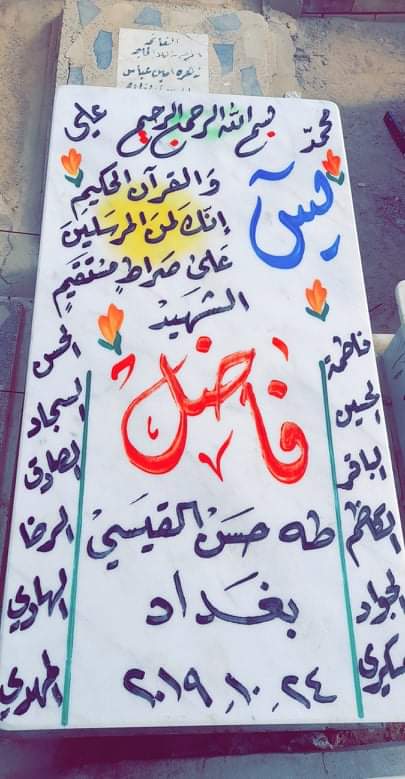 الفاتحة
زهره امان عباس
محمد بسم الله الرحمن الرحيم علي
يس
وَالقرآن الحكيم
إنّكَ لمن المرسَلينَ
عَلىٰ صراطٍ مُسْتَقيمٍ
الشهيد
فاضل
طه حسَن القيسي
بغداد
٢٤ . ١٠ . ٢٠١٩
فاطمة
الحسين
الباقر
الكاظم
الجواد
العسكري
الحسن
السجاد
الصادق
الرضا
الهادي
المهدي